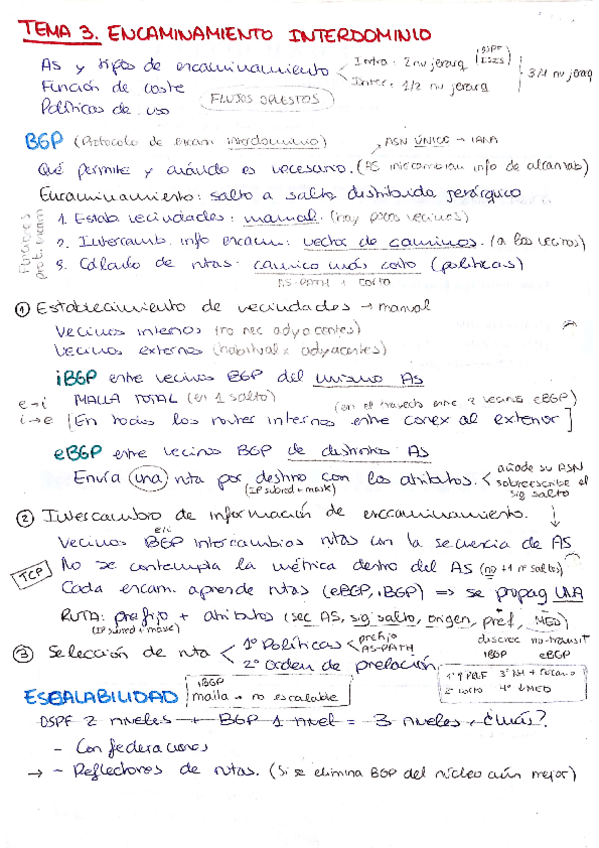 TEMA 3. ENCAMINAMIENTO INTERDOMINIO
AS y tipos de encaminamiento < Intra: 2 nv jerarq (OSPF ISIS) Inter: 1/2 nv jerarq } 3/4 nv jerarq
Función de coste
Políticas de uso
FLUJOS OPUESTOS
BGP (Protocolo de encam interdominio) ASN ÚNICO → IANA
Qué permite y cuándo es necesario. (AS intercambian info de alcanzab)
Encaminamiento: salto a salto, distribuida jerárquico
Funciones prot. encam
1. Estab vecindades: manual. (hay pocos vecinos)
2. Intercamb. info encam: vector de caminos. (a los vecinos)
3. Cálculo de rutas: camino más corto (políticas)
AS-PATH + corto
① Establecimiento de vecindades → manual
Vecinos internos (no nec adyacentes)
Vecinos externos (habitual x adyacentes)
iBGP entre vecinos BGP del mismo AS
e→i MALLA TOTAL (en 1 salto) (en el trayecto entre 2 vecinos eBGP)
i→e [En todos los router internos entre conex al exterior]
eBGP entre vecinos BGP de distintos AS
Envía una ruta por destino con los atributos. < añade su ASN sobreescribe el sig salto
(IP subred + mask)
② Intercambio de información de encaminamiento.
e/i
Vecinos BGP intercambios rutas con la secuencia de AS
TCP No se contempla la métrica dentro del AS (no +1 nº saltos)
Cada encam. aprende rutas (eBGP, iBGP) ⇒ se propag UNA
RUTA: prefijo + atributos (sec AS, sig salto, origen, pref, MED)
(IP subred + mask) discrec no-transit
iBGP eBGP
③ Selección de ruta < 1º Políticas < prefijo AS-PATH
2º Orden de prelación
1º ↑ PREF 3º NH + cercano
2º corto 4º ↓ MED
ESCALABILIDAD iBGP
malla → no escalable
OSPF 2 niveles + BGP 1 nivel = 3 niveles, ¿más?
- Confederaciones
→ - Reflectores de rutas. (Si se elimina BGP del núcleo aún mejor)